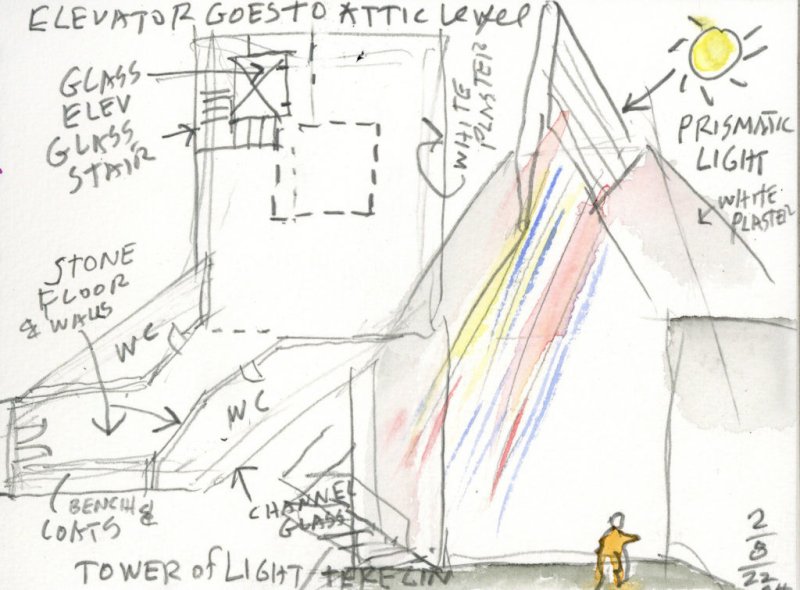 ELEVATOR GOES TO ATTIC Level
GLASS
ELEV
GLASS
STAIR
WHITE
PLASTER
PRISMATIC
LIGHT
WHITE
PLASTER
STONE
FLOOR
& WALLS
WC
WC
BENCH &
COATS
CHANNEL
GLASS
TOWER of LIGHT
2
8
22